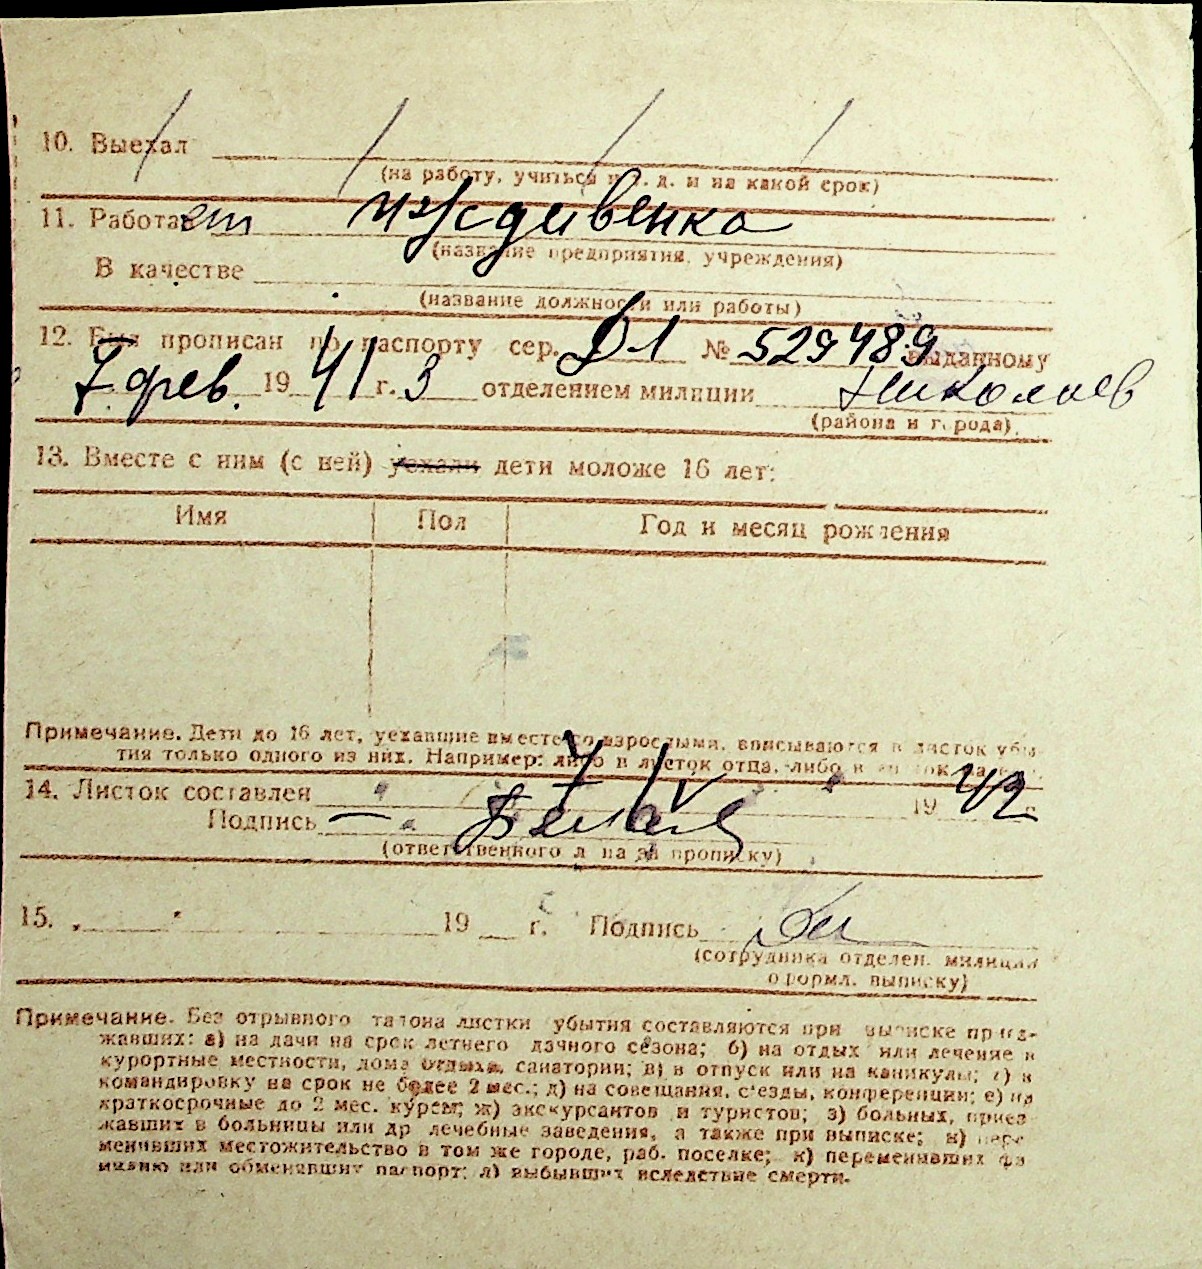 10. Выехал
(на работу, учиться и т. д. и на какой срок)
11. Работает иждивенка
(название предприятия, учреждения)
В качестве
(название должности или работы)
12. Был прописан по паспорту сер. Д1 № 529489 выданному
7 фев. 1941 г. 3 отделением милиции Николаев
(района и города)
13. Вместе с ним (с ней) уехали дети моложе 16 лет:
Имя Пол Год и месяц рождения
Примечание. Дети до 16 лет, уехавшие вместе со взрослыми, вписываются в листок убы-
тия только одного из них. Например: либо в листок отца, либо в
14. Листок составлен 7/V 1942 г.
Подпись
(ответственного лица за прописку)
15. „ " 19 г. Подпись
(сотрудника отделен. милиции
оформл. выписку)
Примечание. Без отрывного талона листки убытия составляются при выписке приез-
жавших: а) на дачи на срок летнего дачного сезона; б) на отдых или лечение в
курортные местности, дома отдыха, санатории; в) в отпуск или на каникулы; г) в
командировку на срок не более 2 мес.; д) на совещания, съезды, конференции; е) на
краткосрочные до 2 мес. курсы; ж) экскурсантов и туристов; з) больных, приез-
жавших в больницы или др лечебные заведения, а также при выписке; и) пере-
менивших местожительство в том же городе, раб. поселке; к) переменивших фа
милию или обменявших паспорт; л) выбывших вследствие смерти.